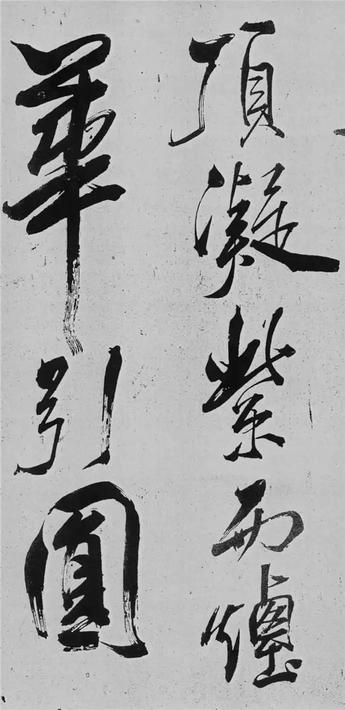 頂凝紫而
華引圓